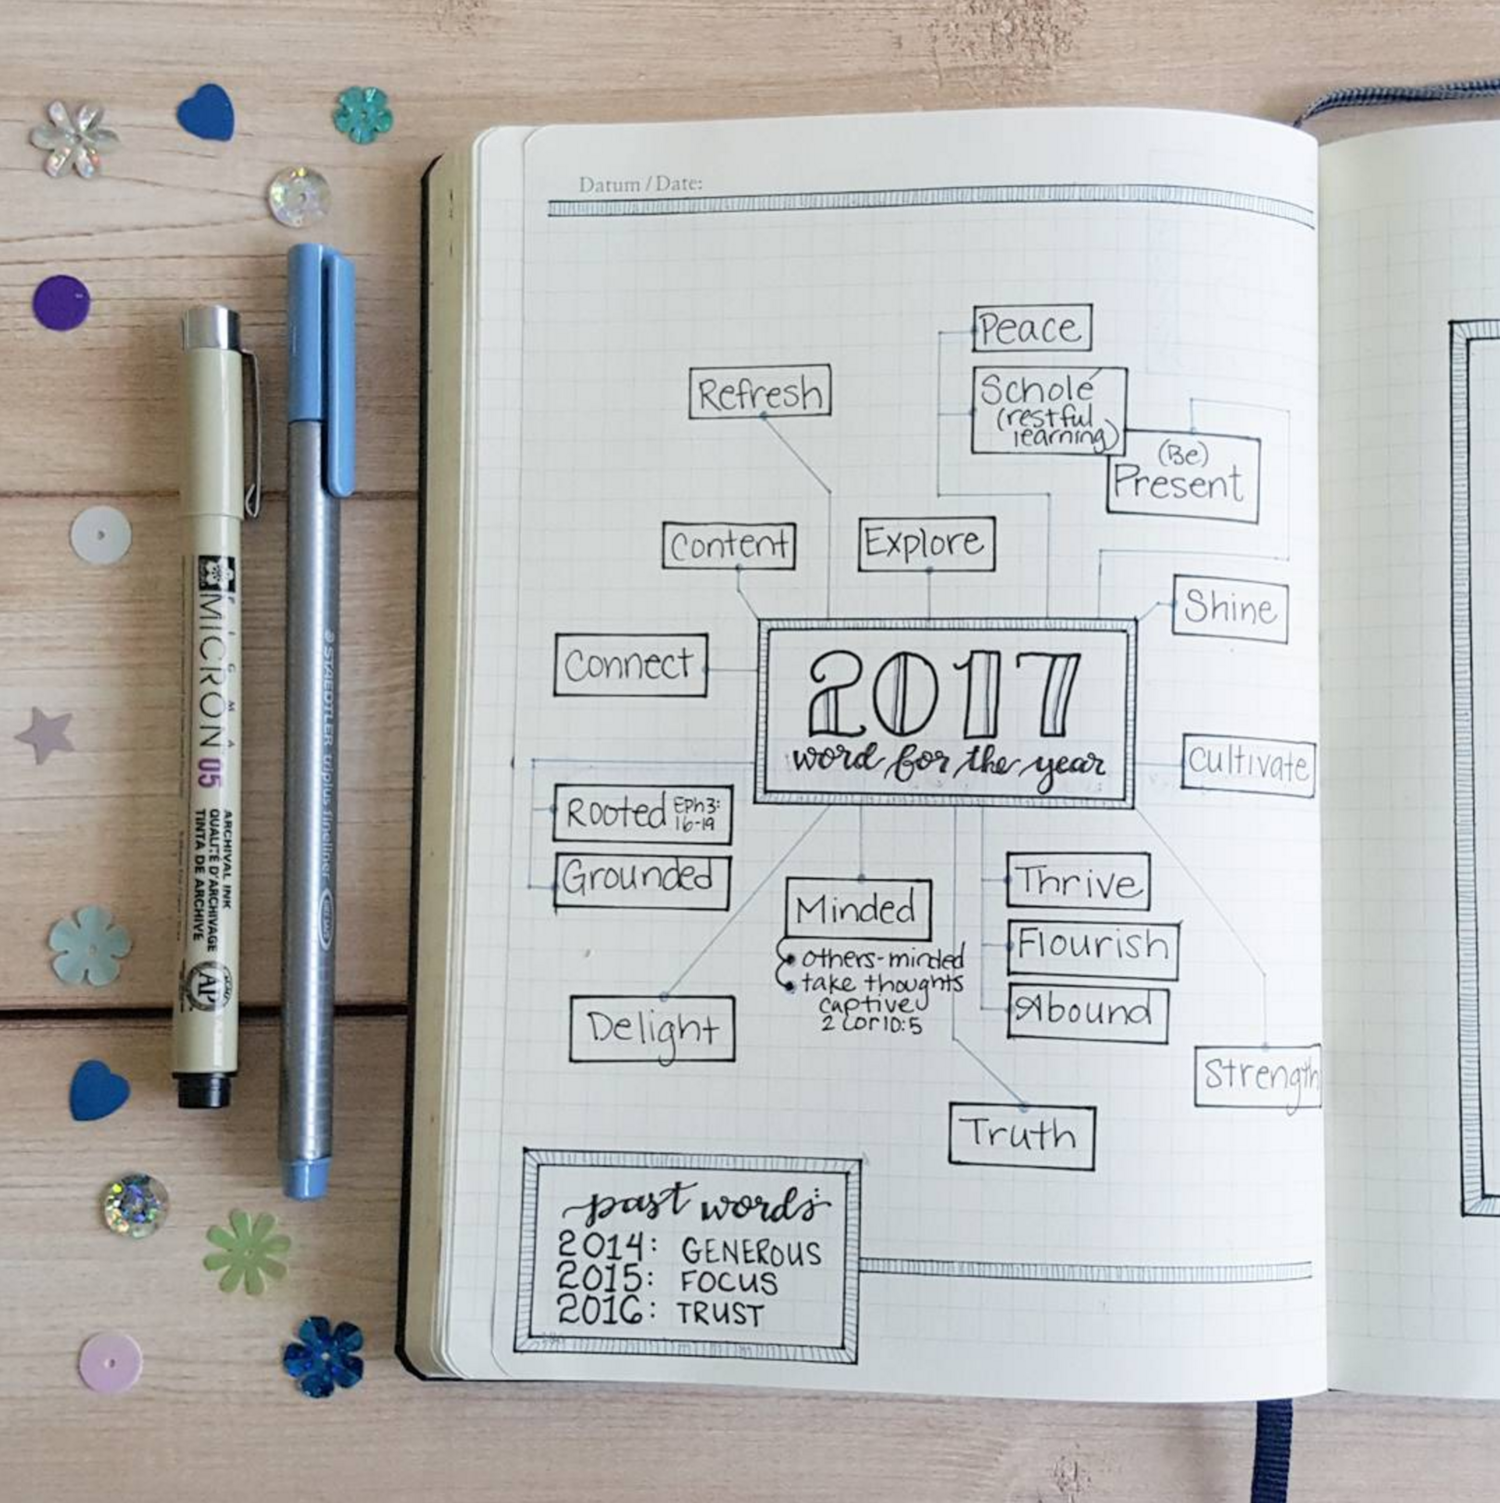 Datum / Date:
Peace
Refresh
Scholé
(restful
learning)
(Be)
Present
Content
Explore
Shine
Connect
2017
word for the year
Cultivate
Rooted Eph 3:
16-19
Grounded
Minded
others-minded
take thoughts
captive
2 Cor 10:5
Thrive
Flourish
Abound
Delight
Strength
Truth
past words:
2014: GENEROUS
2015: FOCUS
2016: TRUST
SIGMA
MICRON 05
ARCHIVAL INK
QUALITÉ D'ARCHIVAGE
TINTA DE ARCHIVE
AP
STAEDTLER triplus fineliner